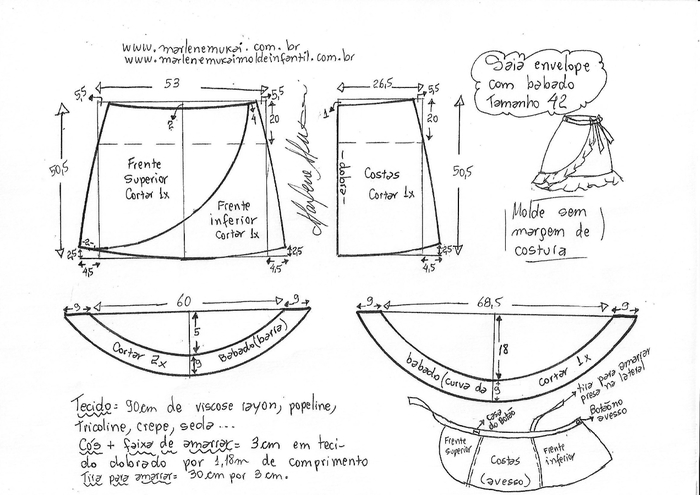 www.marlenemukai.com.br
www.marlenemukaimoldeinfantil.com.br
Saia envelope
com babado
Tamanho 42
5,5
53
5,5
2
4
20
50,5
Frente
Superior
Cortar 1x
Frente
inferior
Cortar 1x
2
2,5
4,5
4,5
2,5
Marlene Mukai
26,5
5,5
1
20
dobra
Costas
Cortar 1x
50,5
2,5
4,5
Molde sem
margem de
costura
9
60
9
5
9
Cortar 2x
Babado (barra)
9
68,5
9
18
9
babado (curva da
Cortar 1x
Tecido = 90cm de viscose rayon, popeline,
tricoline, crepe, seda...
Cós + faixa de amarrar = 3cm em teci-
do dobrado por 1,18m de comprimento
Tira para amarrar = 30cm por 3cm.
Casa
do Botão
tira para amarrar
presa na lateral
Botão no
avesso
Frente
superior
Costas
(avesso)
Frente
inferior